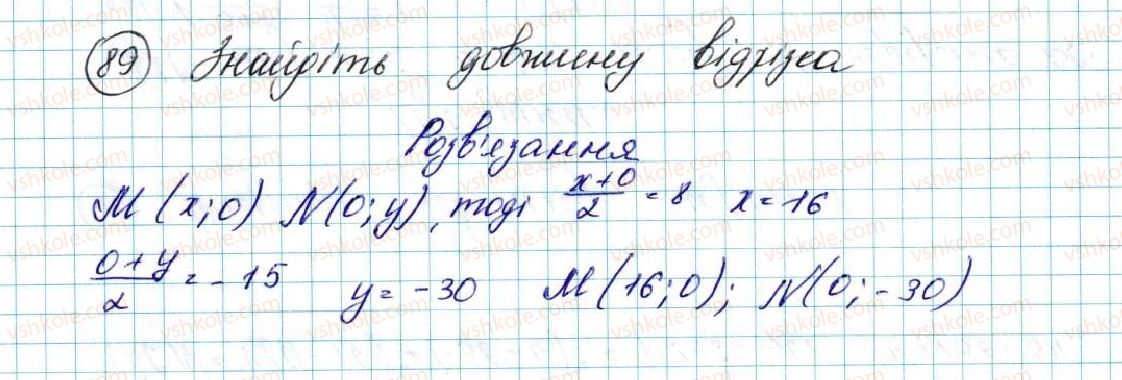 89 Знайдіть довжину відрізка
Розв'язання
M (x; 0) N(0; y), тоді \frac{x+0}{2} = 8 x = 16
\frac{0+y}{2} = -15 y = -30 M (16; 0); N(0; -30)